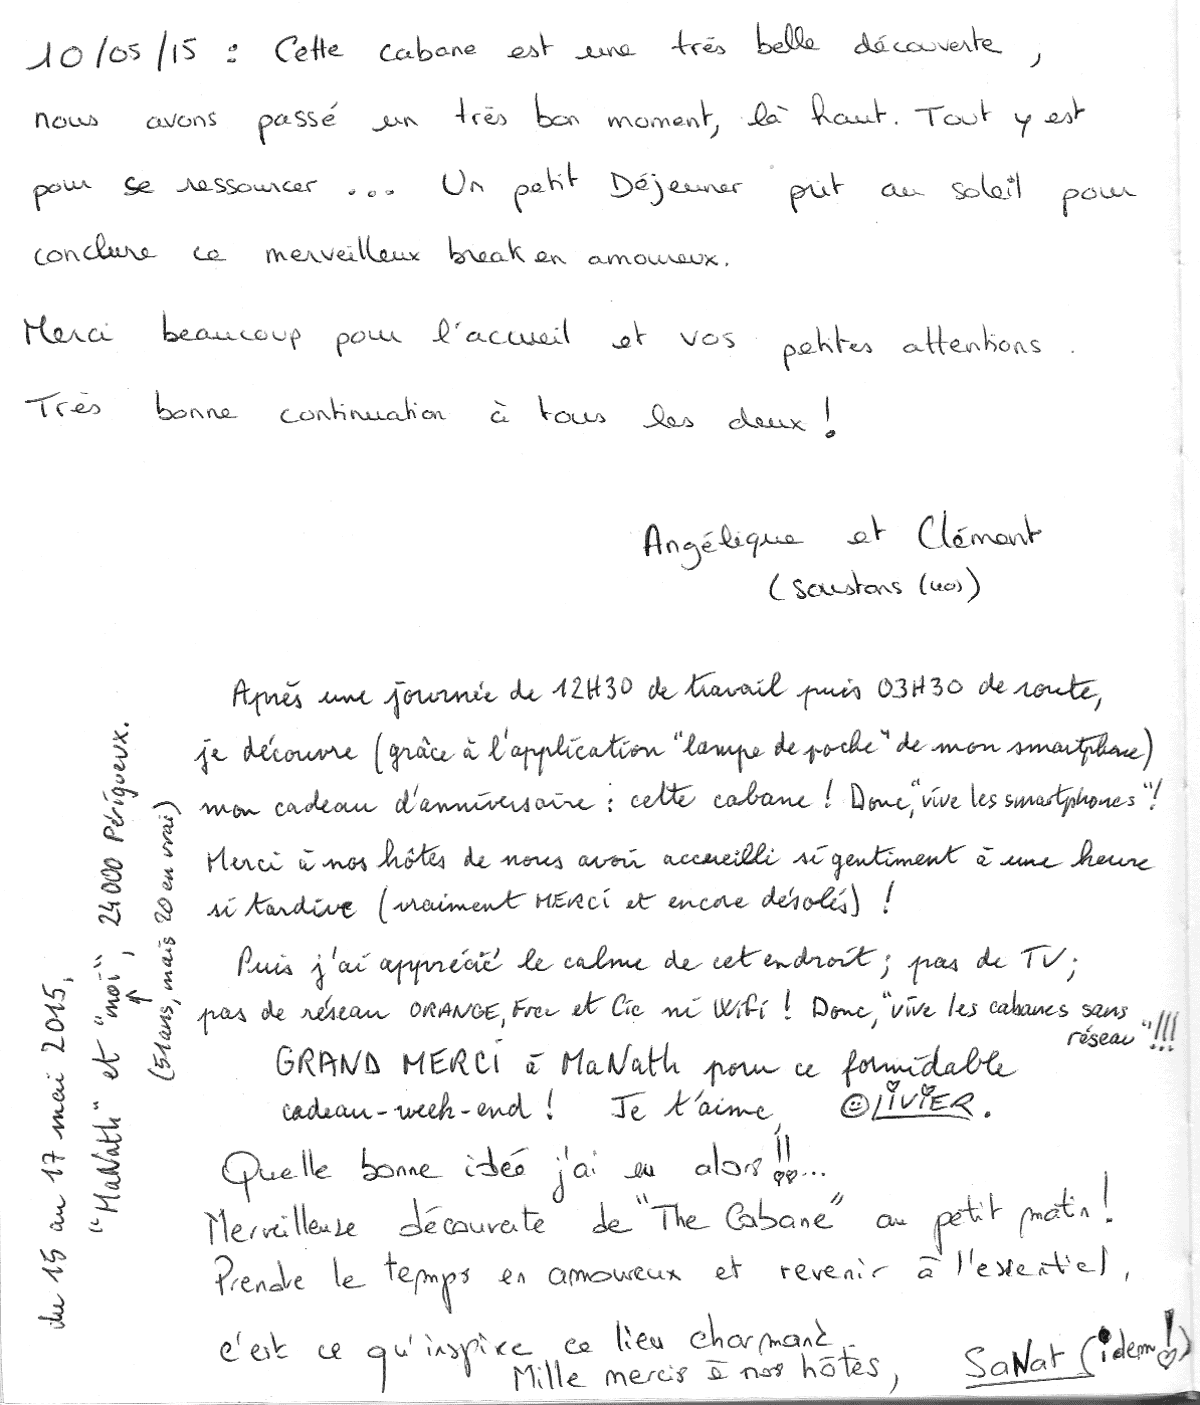 10/05/15 : Cette cabane est une très belle découverte,
nous avons passé un très bon moment, là haut. Tout y est
pour se ressourcer ... Un petit Déjeuner prit au soleil pour
conclure ce merveilleux break en amoureux.
Merci beaucoup pour l'accueil et vos petites attentions.
Très bonne continuation à tous les deux !
Angélique et Clément
(Soustons (40))
Après une journée de 12H30 de travail puis 03H30 de route,
je découvre (grâce à l'application "lampe de poche" de mon smartphone)
mon cadeau d'anniversaire : cette cabane ! Donc, "vive les smartphones"!
Merci à nos hôtes de nous avoir accueilli si gentiment à une heure
si tardive (vraiment MERCI et encore désolés) !
Puis j'ai apprécié le calme de cet endroit ; pas de TV ;
pas de réseau ORANGE, Free et Cie ni WiFi ! Donc, "vive les cabanes sans
réseau"!!!
GRAND MERCI à MaNath pour ce formidable
cadeau-week-end ! Je t'aime, OLIVIER.
Quelle bonne idée j'ai eu alors !!...
Merveilleuse découverte de "The Cabane" au petit matin !
Prendre le temps en amoureux et revenir à l'essentiel,
c'est ce qu'inspire ce lieu charmant.
Mille mercis à nos hôtes, SaNat (idem !)
du 15 au 17 mai 2015,
"MaNath" et "moi", 24000 Périgueux.
(51ans, mais 20 en vrai)